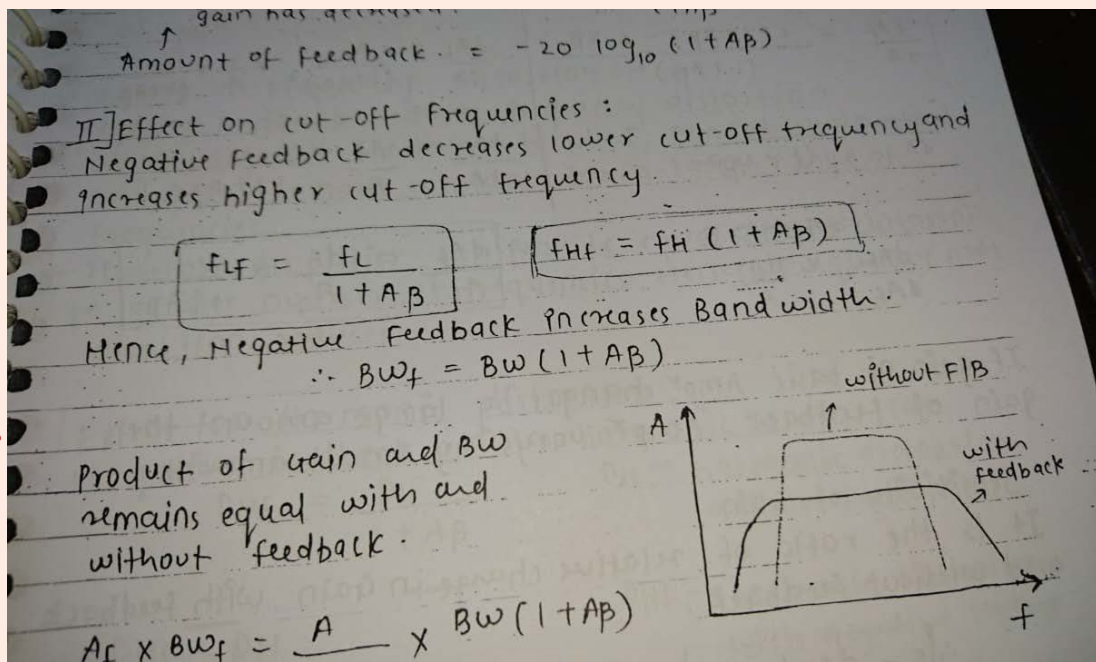 gain has decreased
↑
Amount of feedback. = -20 log₁₀ (1+Aβ)
II] Effect on cut-off Frequencies :
Negative Feedback decreases lower cut-off frequency and
increases higher cut-off frequency
fLf = fL / 1+Aβ
fHf = fH (1+Aβ)
Hence, Negative Feedback increases Bandwidth.
∴ BWf = BW (1+Aβ)
Product of Gain and BW
remains equal with and
without feedback.
without F/B
A
with
feedback
f
Af × BWf = A × BW (1+Aβ)